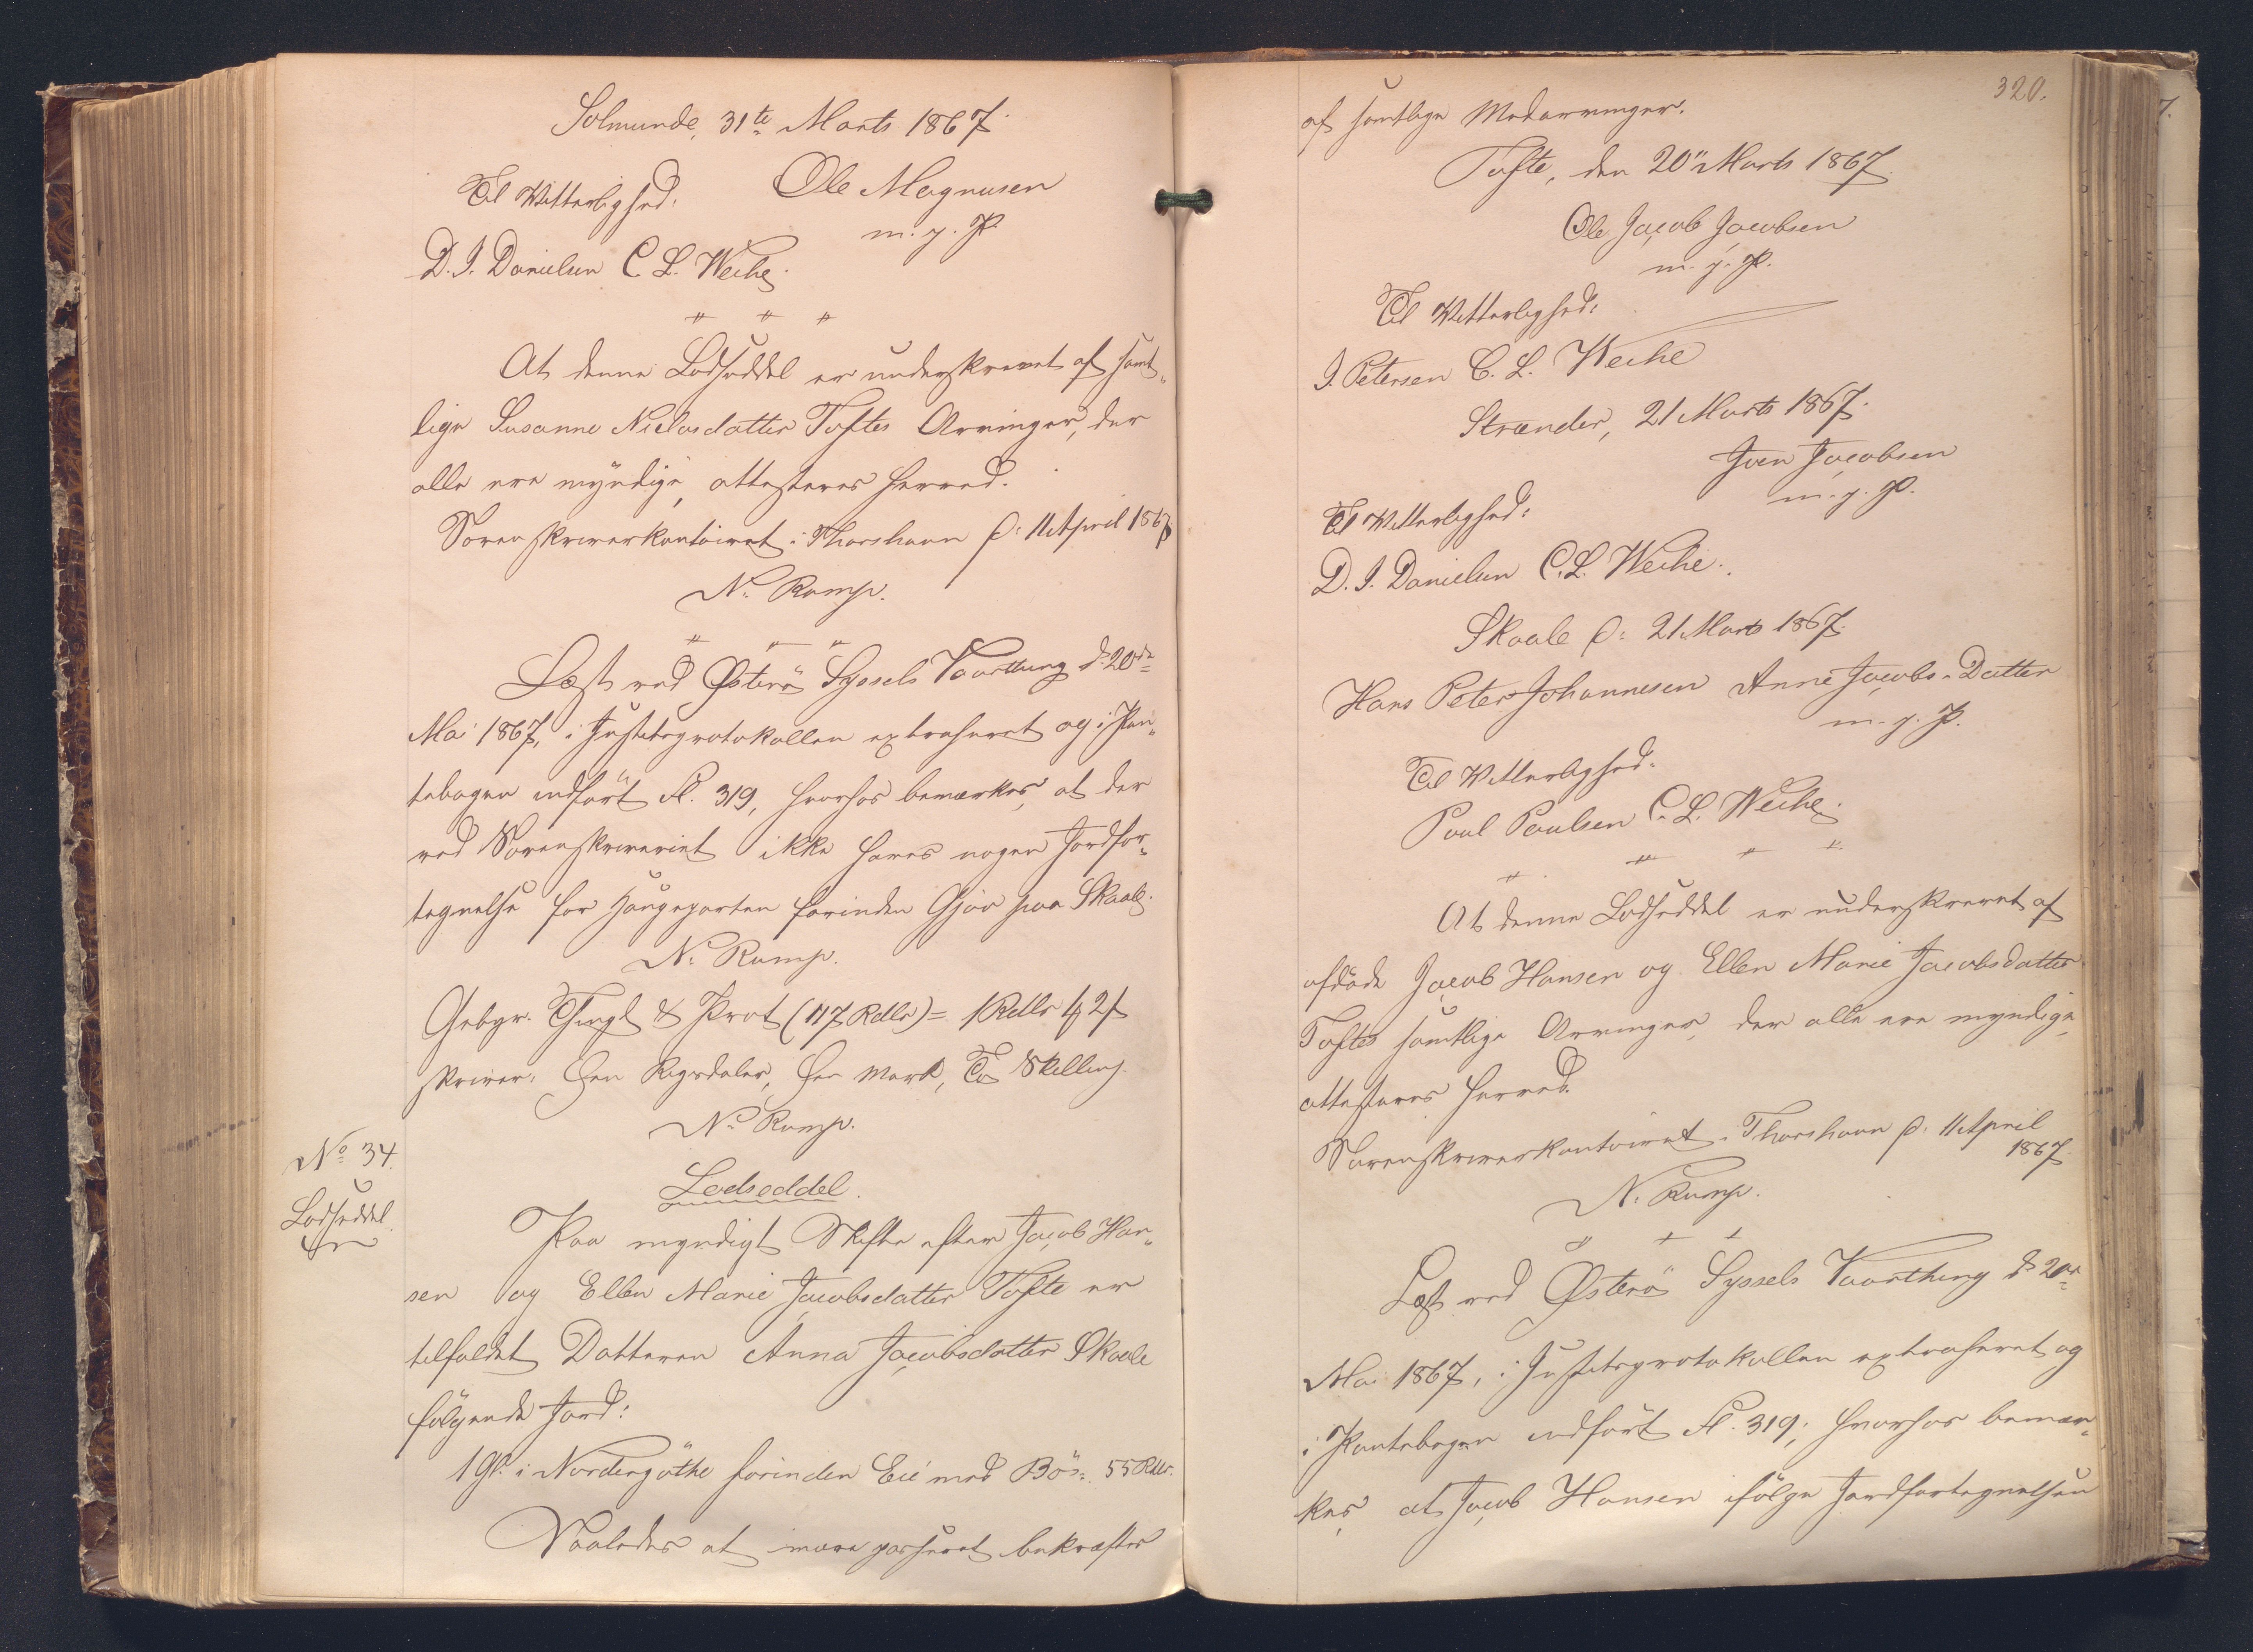 Solmunde, 31te Marts 1867.
Til Vitterlighed: Ole Magnusen
m. p. P.
D. J. Danielsen C. L. Weihe.
" " "
At denne Lodseddel er underskrevet af samt„
lige Susanne Niclasdatter Toftes Arvinger, der
alle ere myndige, attesteres herved.
Sorenskriverkontoiret i Thorshavn d: 11 April 1867
N. Rump.
" " "
Læst ved Østerö Syssels Vaarthing d. 20de
Mai 1867, i Justitsprotokollen extraheret og i Pan„
tebogen indfört fl. 319, hvorhos bemærkes, at der
ved Sorenskriveriet ikke haves nogen Jordfor„
tegnelse for Haugeparten forinden Gjov paa Skaale.
N. Rump.
Gebyr. Thingl & Prot (117 Rdlr) = 1 Rdlr 1 ₻ 2 ſ
skriver: Een Rigsdaler, Een Mark, To Skilling.
N. Rump.
No 34.
Lodseddel.
Lodseddel.
Paa myndigt Skifte efter Jacob Han„
sen og Ellen Marie Jacobsdatter Tofte er
tilfaldet Datteren Anna Jacobsdatter Skaale
fölgende Jord:
1 Gl. i Nordregöthe forinden Eie med Bös: 55 Rdlr.
Saaledes at være passeret bekræftes
320.
af samtlige Medarvinger.
Tofte, den 20" Marts 1867.
Ole Jacob Jacobsen
m. p. P.
Til Vitterlighed:
J. Petersen C. L. Weihe
Strænder, 21 Marts 1867.
Joen Jacobsen
m. p. P.
Til Vitterlighed:
D. J. Danielsen C. L. Weihe.
Skaale d: 21 Marts 1867.
Hans Peter Johannesen Anne Jacobs-Datter
m. p. P.
Til Vitterlighed:
Poul Poulsen C. L. Weihe.
" " " "
At denne Lodseddel er underskrevet af
afdöde Jacob Hansen og Ellen Marie Jacobsdatter
Toftes samtlige Arvinger, der alle ere myndige,
attesteres herved.
Sorenskriverkontoiret i Thorshavn d: 11 April
1867.
N. Rump.
" " "
Læst ved Østerö Syssels Vaarthing d. 20de
Mai 1867, i Justitsprotokollen extraheret og
i Pantebogen indfört fl. 319; hvorhos bemær„
kes, at Jacob Hansen ifölge Jordfortegnelsen